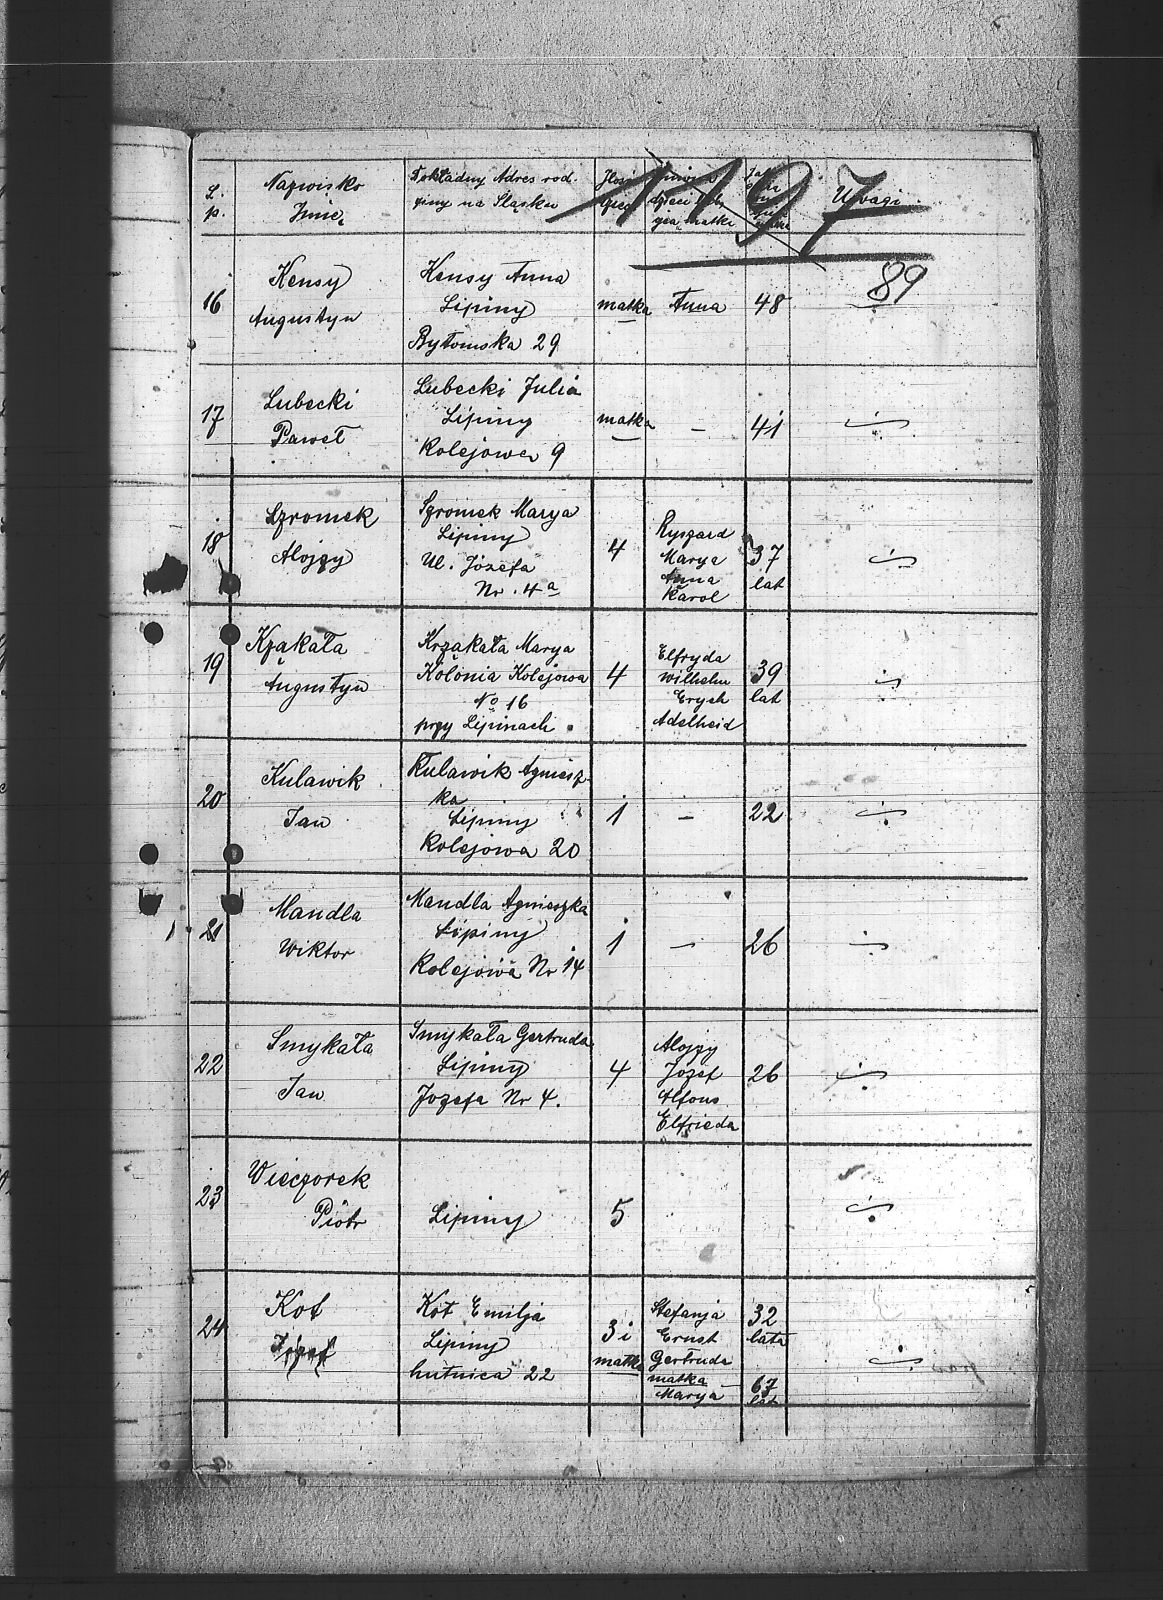 L. p.
Nazwisko
Imię
Dokładny Adres rod-
ziny na Śląsku
Ilość
dzieci
Uwagi
197
89
16
Kensy
Augustyn
Kensy Anna
Lipiny
Bytomska 29
matka
Anna
48
17
Lubecki
Paweł
Lubecki Julia
Lipiny
Kolejowa 9
matka
-
41
18
Szromek
Alojzy
Szromek Marya
Lipiny
Ul. Józefa
Nr. 4a
4
Ryszard
Marya
Anna
Karol
37
lat
19
Krzakała
Augustyn
Krzakała Marya
Kolonia Kolejowa
No 16
przy Lipinach
4
Elfryda
Wilhelm
Erych
Adelheid
39
lat
20
Kulawik
Jan
Kulawik Agniesz-
ka
Lipiny
Kolejowa 20
1
-
22
21
Mandla
Wiktor
Mandla Agnieszka
Lipiny
Kolejowa Nr 14
1
-
26
22
Smykała
Jan
Smykała Gertruda
Lipiny
Jozefa Nr 4.
4
Alojzy
Jozef
Alfons
Elfrieda
26
23
Wieczorek
Piotr
Lipiny
5
24
Kot
Józef
Kot Emilja
Lipiny
hutnica 22
3 i
matka
Stefanja
Ernst
Gertruda
matka
Marya
32
lata
67
lat